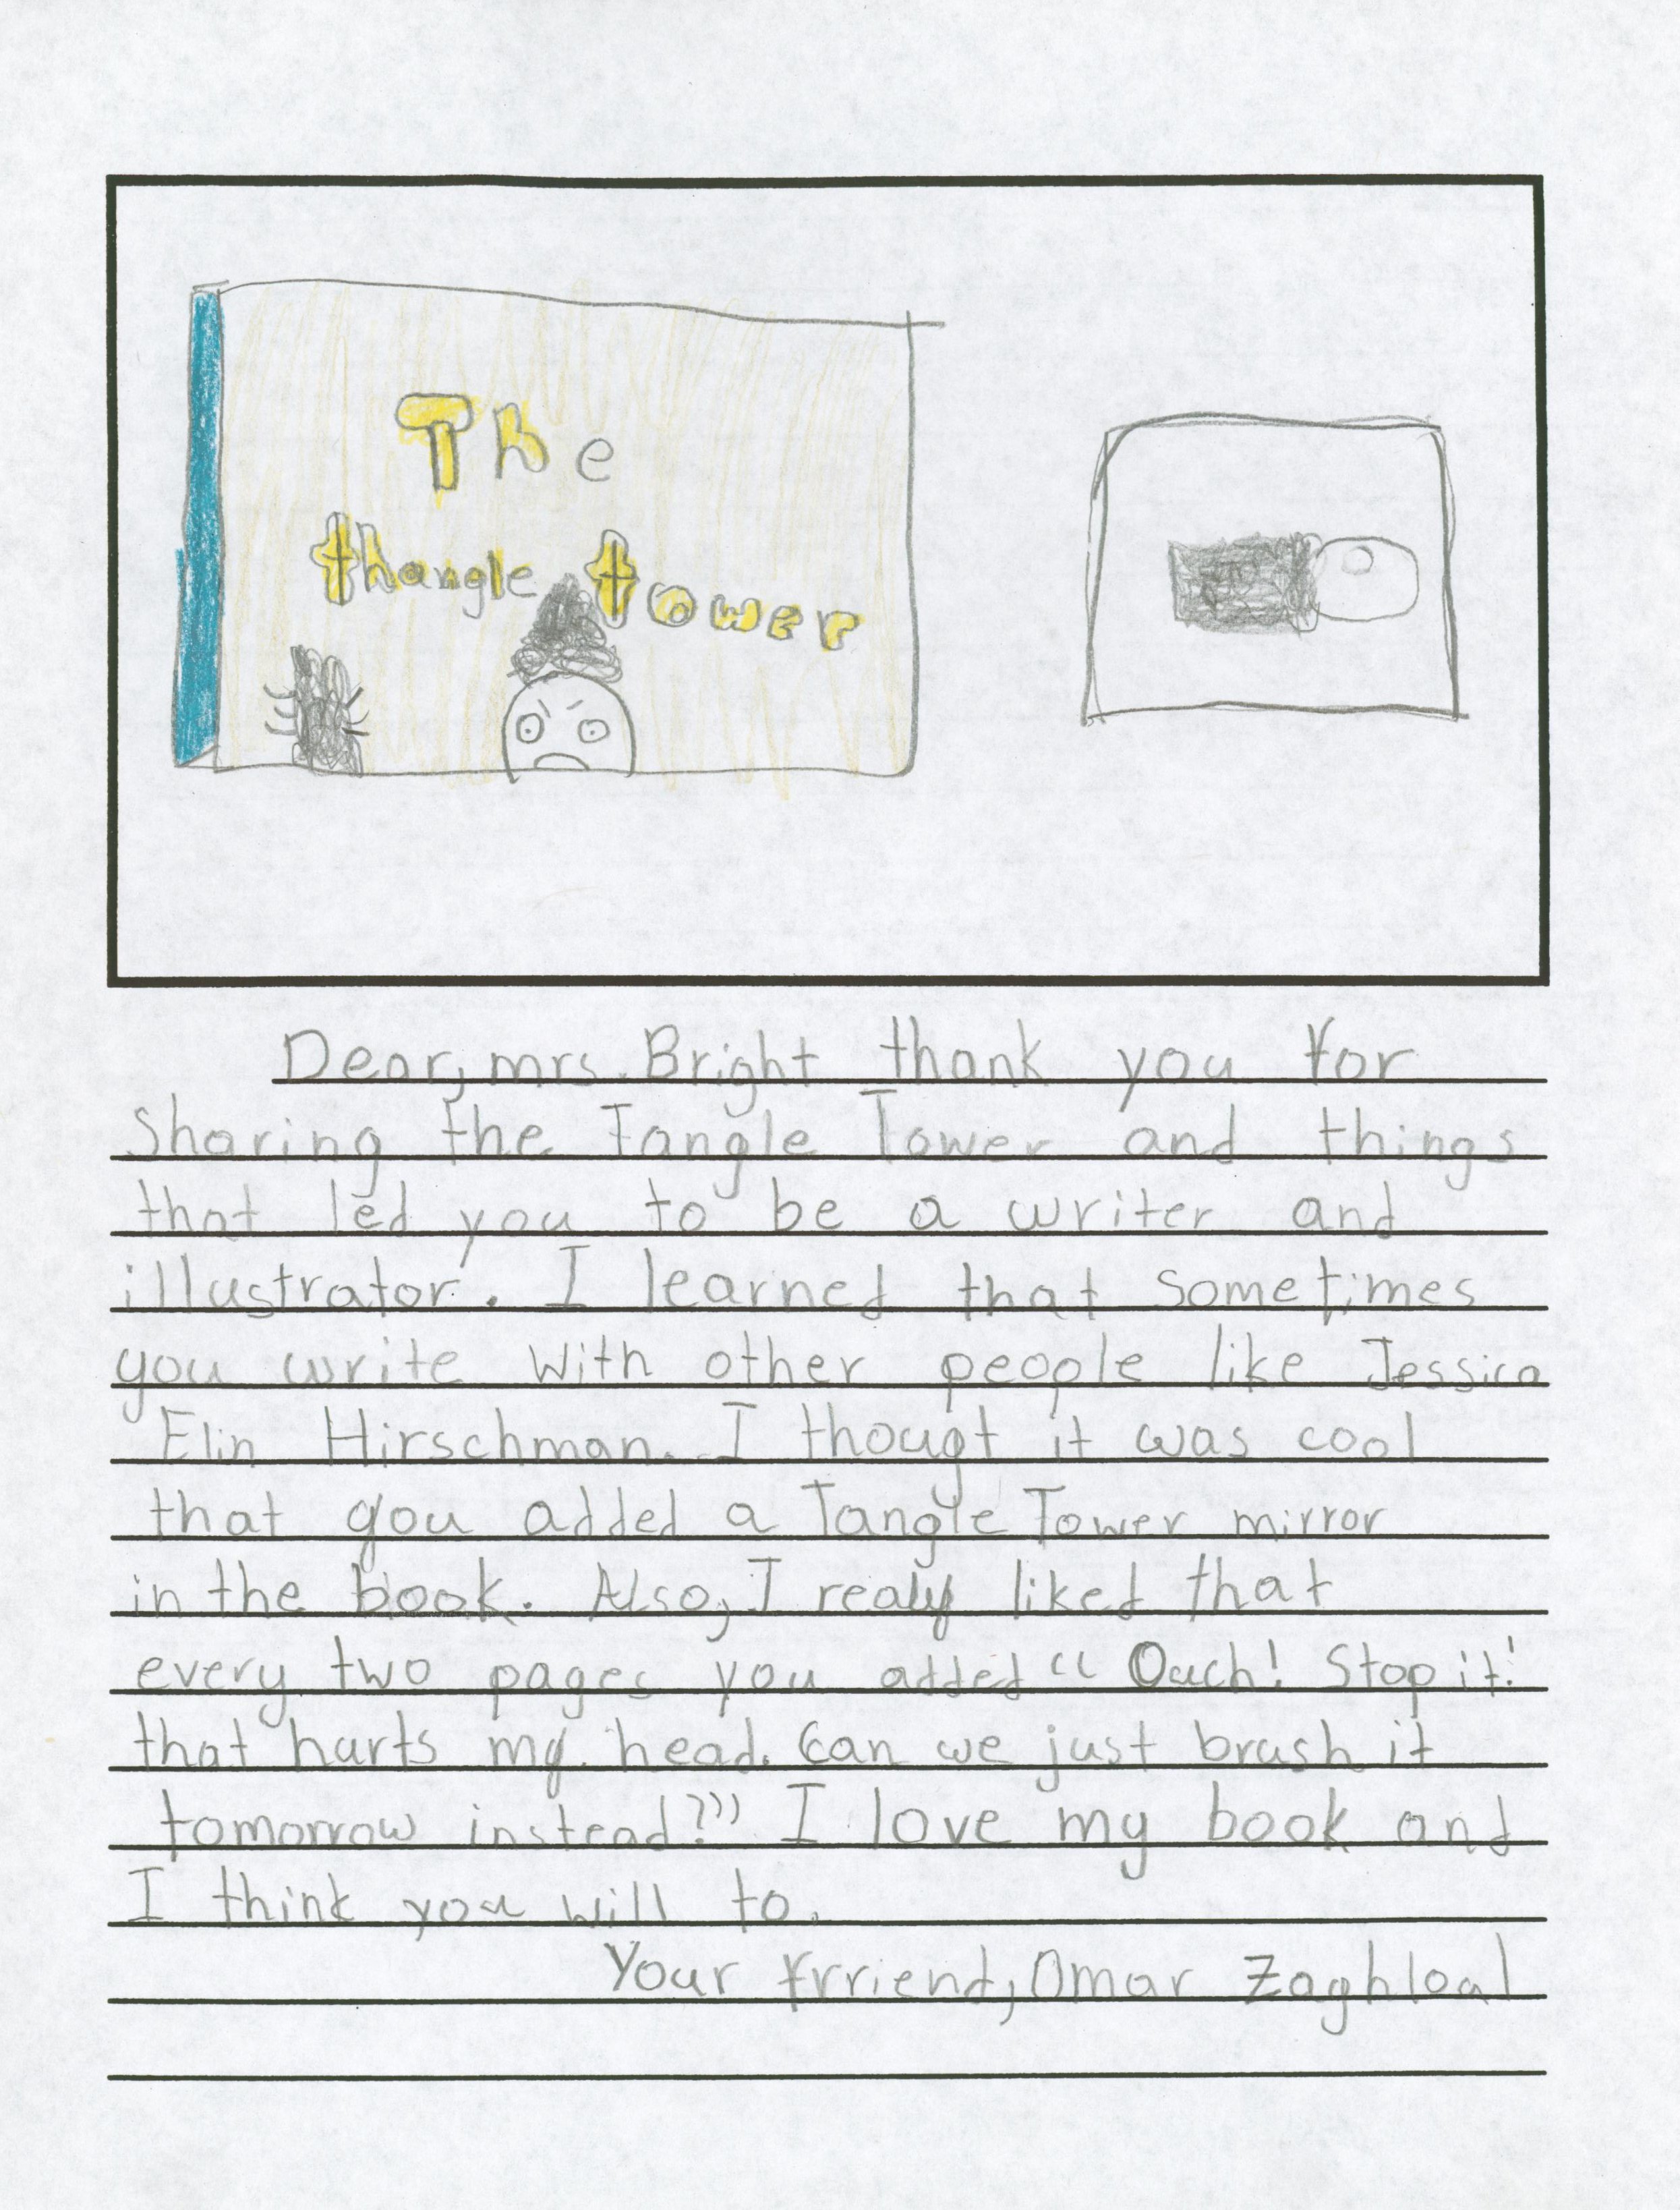 The
thangle tower
Dear, mrs. Bright thank you for
Sharing the Tangle Tower and things
that led you to be a writer and
illustrator. I learned that sometimes
you write with other people like Jessica
Elin Hirschman. I thougt it was cool
that you added a Tangle Tower mirror
in the book. Also, I realy liked that
every two pages you added "Ouch! Stop it!
that hurts my head. Can we just brush it
tomorrow instead?" I love my book and
I think you will to.
Your frriend, Omar Zaghloal